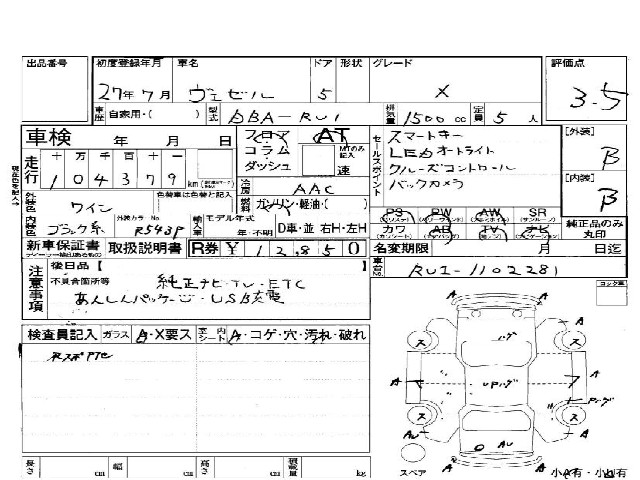 出品番号 初度登録年月 車名 ドア 形状 グレード 評価点
27年7月 ヴェゼル 5 X 3.5
車歴 自家用・( ) 型式 DBA-RU1 排気量 1500cc 定員 5人
車検 年 月 日 フロア AT セールスポイント スマートキー [外装] B
コラム MTのみ記入 LEDオートライト
走行 十 万 千 百 十 一 ダッシュ 速 クルーズコントロール
104379 km 冷房 AAC バックカメラ [内装] B
外装色 ワイン 色替車は色替と記入 燃料 ガソリン・軽油・( )
内装色 ブラック系 外装カラーNo. R543P 輸入車 モデル年式 年・不明 D車・並 右H・左H
PS PW AW SR 純正品のみ丸印
カワ AB TV ナビ
新車保証書 取扱説明書 R券 ¥12,850 名変期限 月 日迄
注意事項 後日品【 】 車台No. RU1-1102281
不具合箇所等 純正ナビ・TV・ETC
あんしんパッケージ・USB充電
検査員記入 ガラス A・X要ス 室内シート A・コゲ・穴・汚れ・破れ
長さ cm 幅 cm 高さ cm 積載量 kg スペア 小A有・小U有